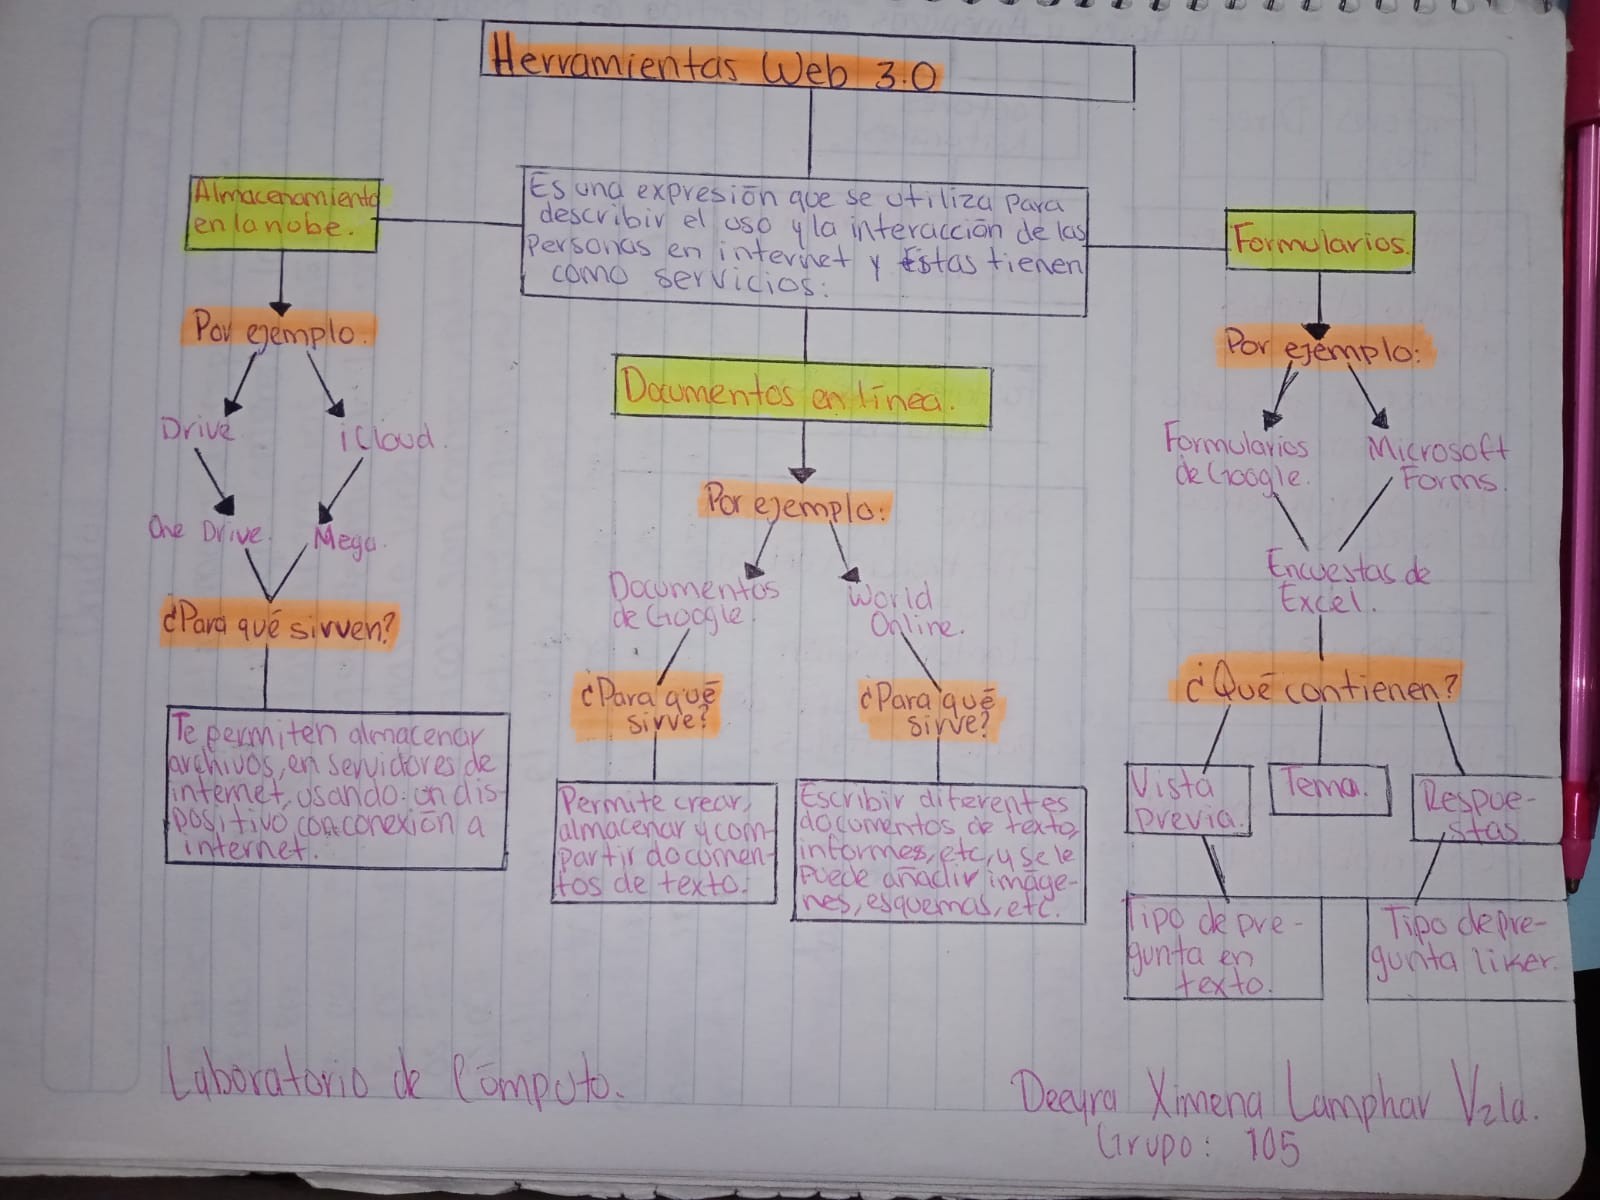 Herramientas Web 3.0
Es una expresión que se utiliza para
describir el uso y la interacción de las
personas en internet y Estas tienen
como servicios:
Almacenamiento
en la nobe.
Por ejemplo.
Drive
iCloud.
One Drive.
Mega.
¿Para qué sirven?
Te permiten almacenar
archivos, en servidores de
internet, usando un dis-
positivo con conexión a
internet.
Documentos en línea.
Por ejemplo:
Documentos
de Google.
World
Online.
¿Para qué
sirve?
¿Para qué
sirve?
Permite crear,
almacenar y com-
partir documen-
tos de texto.
Escribir diferentes
documentos de texto,
informes, etc, y se le
puede añadir imáge-
nes, esquemas, etc.
Formularios.
Por ejemplo:
Formularios
de Google.
Microsoft
Forms.
Encuestas de
Excel.
¿Qué contienen?
Vista
previa.
Tema.
Respue-
stas.
Tipo de pre-
gunta en
texto.
Tipo de pre-
gunta liker.
Laboratorio de Cómputo.
Deeyra Ximena Lamphar Vzla.
Grupo: 105